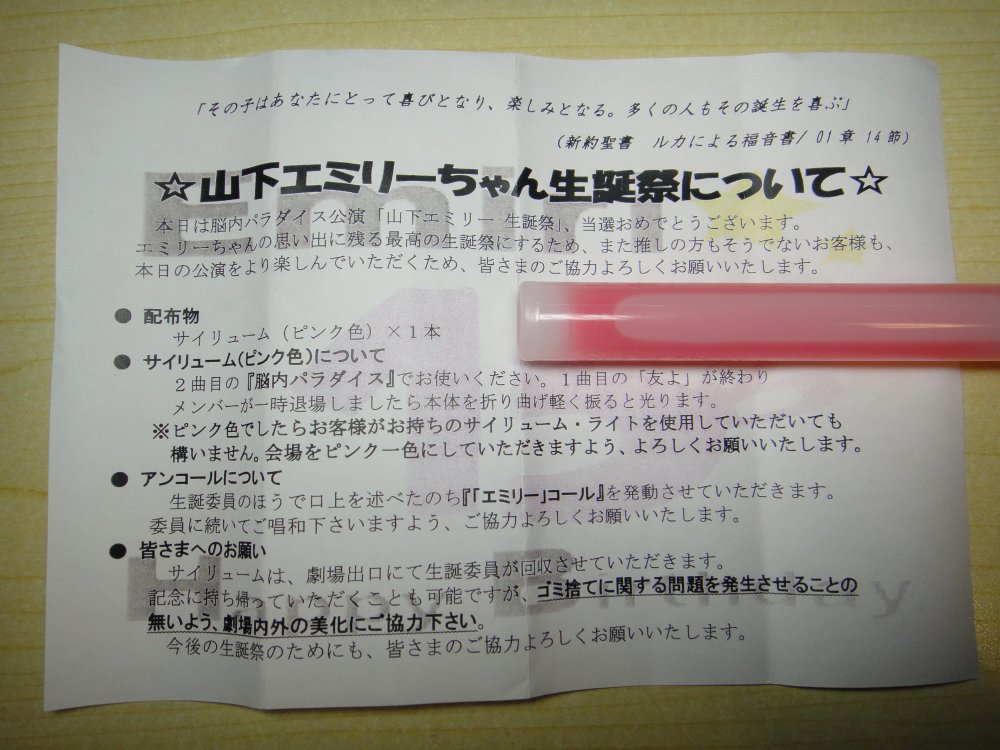 「その子はあなたにとって喜びとなり、楽しみとなる。多くの人もその誕生を喜ぶ」
（新約聖書　ルカによる福音書/ 01章 14節）
☆山下エミリーちゃん生誕祭について☆
本日は脳内パラダイス公演「山下エミリー 生誕祭」、当選おめでとうございます。
エミリーちゃんの思い出に残る最高の生誕祭にするため、また推しの方もそうでないお客様も、
本日の公演をより楽しんでいただくため、皆さまのご協力よろしくお願いいたします。
● 配布物
サイリューム（ピンク色）×１本
● サイリューム(ピンク色)について
２曲目の『脳内パラダイス』でお使いください。１曲目の「友よ」が終わり
メンバーが一時退場しましたら本体を折り曲げ軽く振ると光ります。
※ピンク色でしたらお客様がお持ちのサイリューム・ライトを使用していただいても
構いません。会場をピンク一色にしていただきますよう、よろしくお願いいたします。
● アンコールについて
生誕委員のほうで口上を述べたのち『「エミリー」コール』を発動させていただきます。
委員に続いてご唱和下さいますよう、ご協力よろしくお願いいたします。
● 皆さまへのお願い
サイリュームは、劇場出口にて生誕委員が回収させていただきます。
記念に持ち帰っていただくことも可能ですが、ゴミ捨てに関する問題を発生させることの
無いよう、劇場内外の美化にご協力下さい。
今後の生誕祭のためにも、皆さまのご協力よろしくお願いいたします。
Emily
Happy Birthday